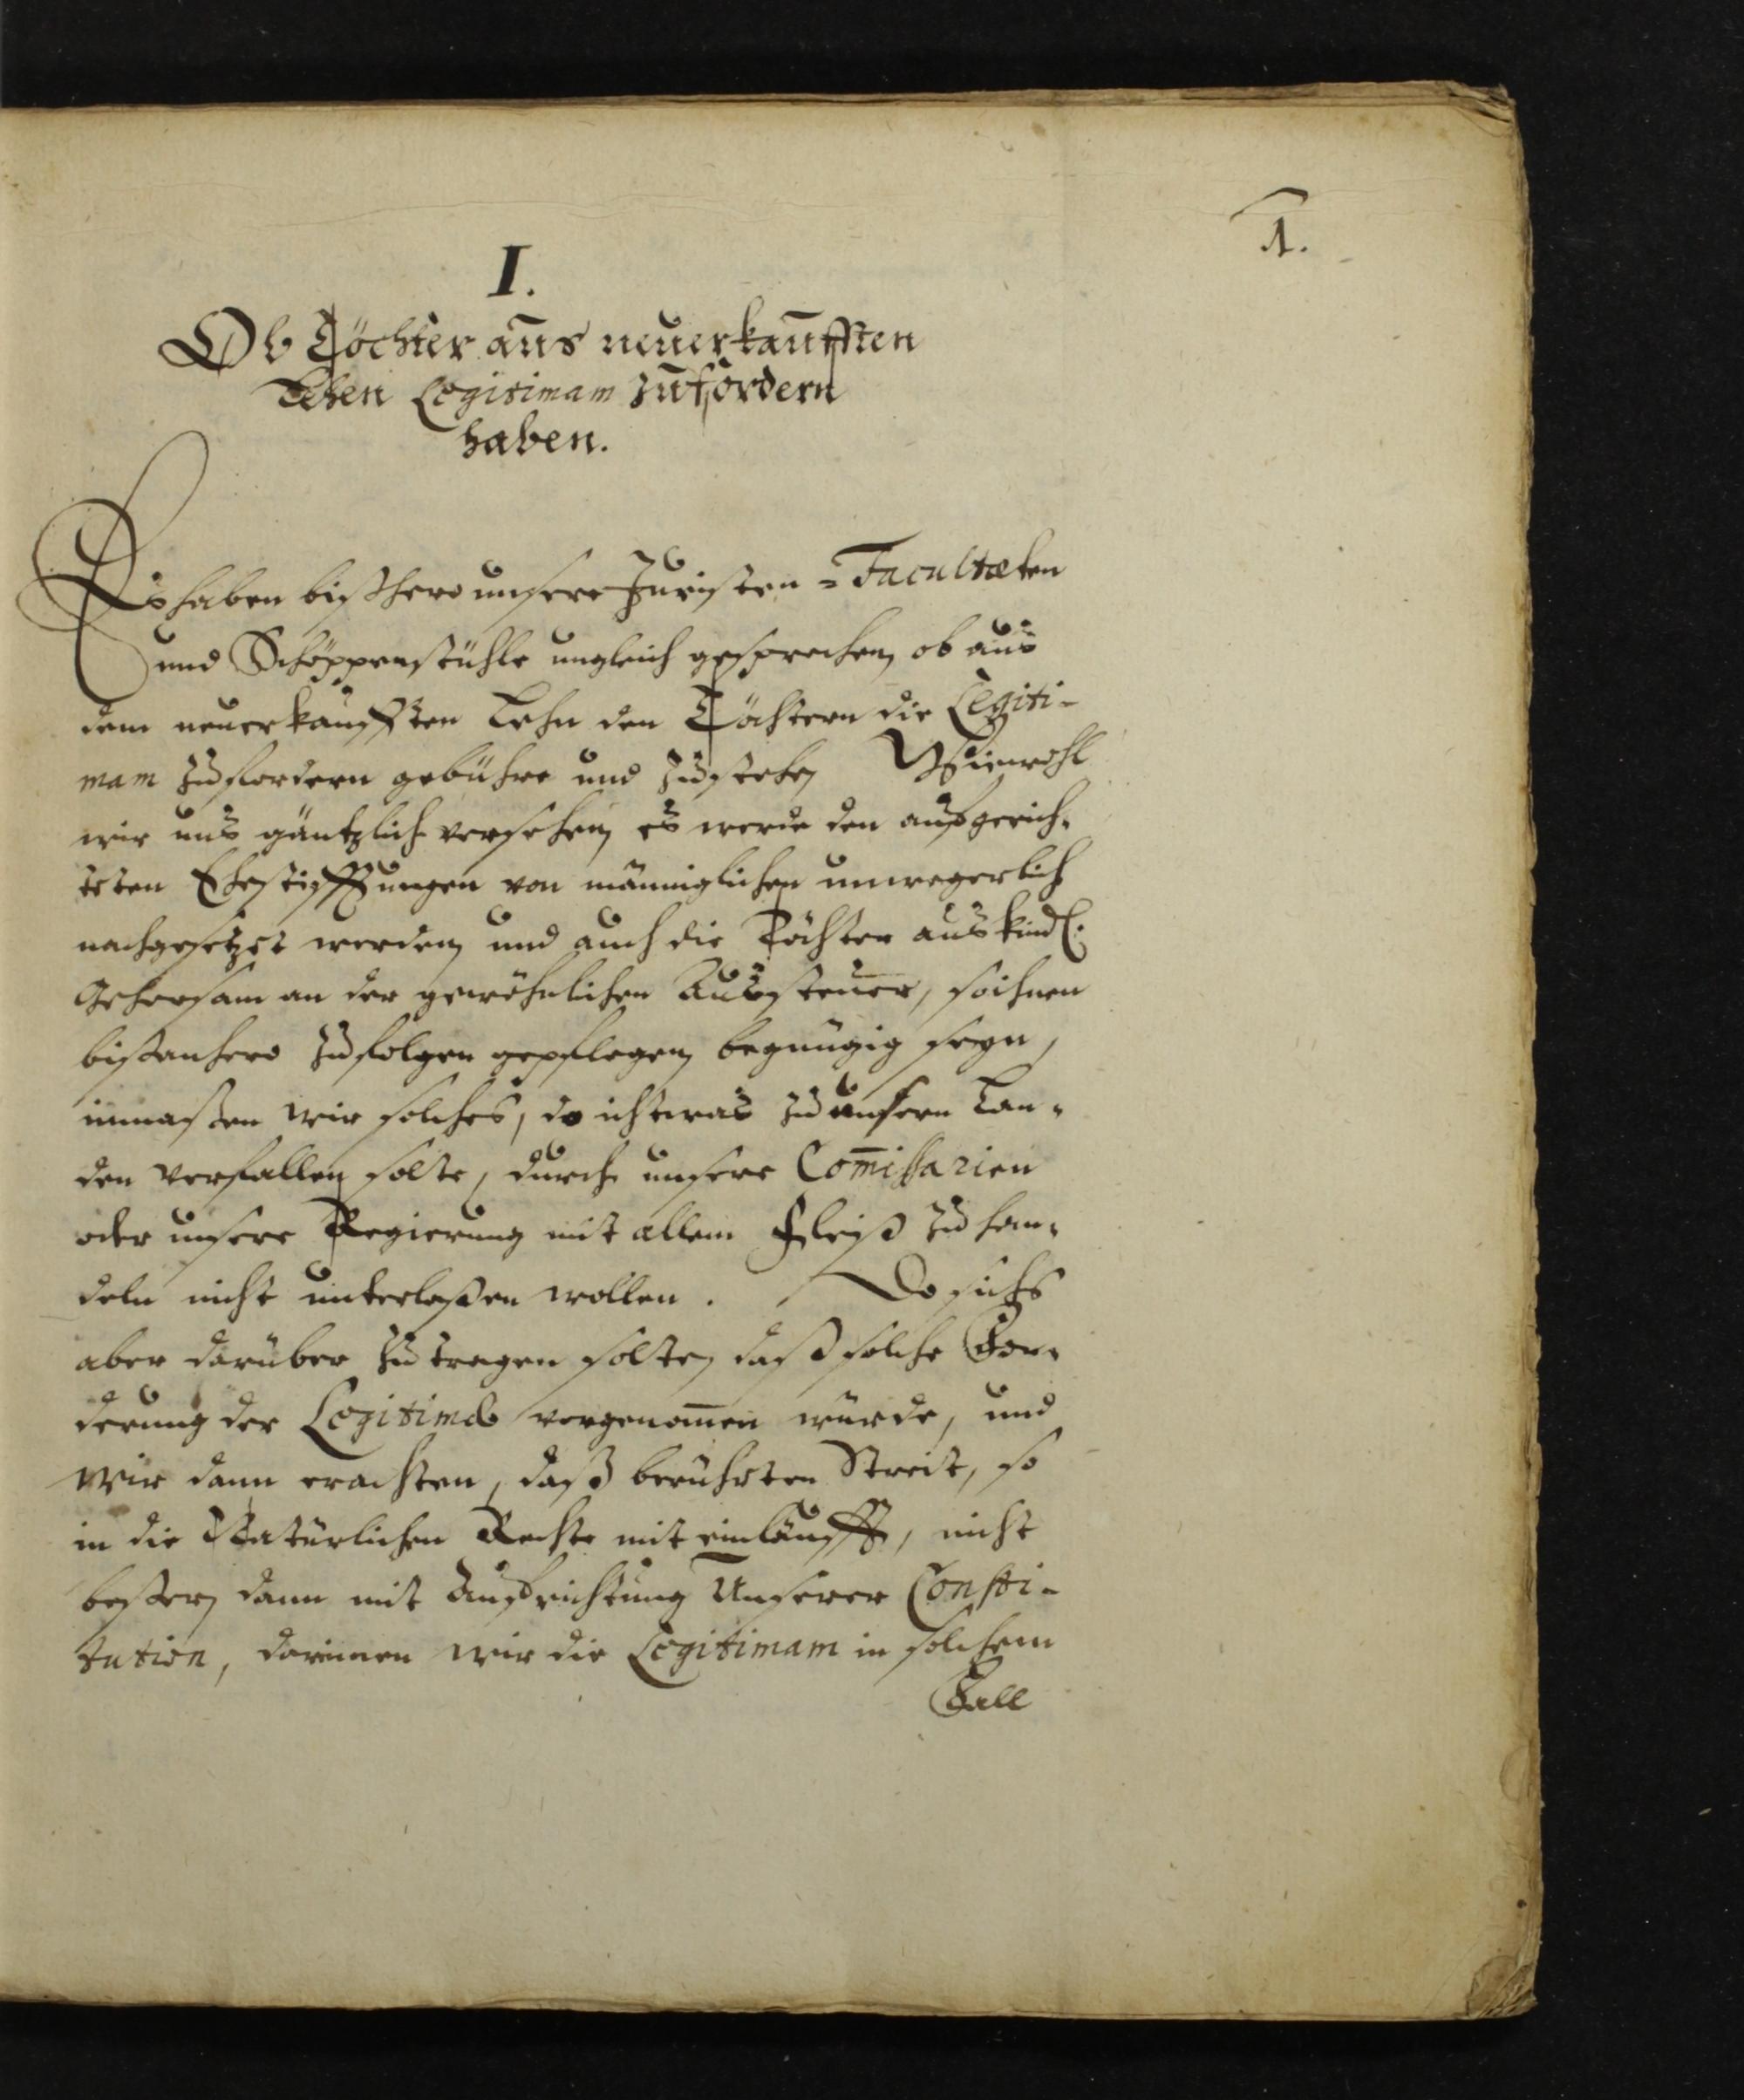 1.
I.
Ob Töchter aus neuerkaufften
Lehen Legitimam zufordern
haben.
Es haben bißhero unsere Juristen-Facultæten
und Schöppenstühle ungleich gesprochen, ob aus
dem neuerkaufften Lehn den Töchtern die Legiti-
mam zufordern gebühre und zustehe, Wiewohl
wir uns gäntzlich versehen, es werde den aufgerich-
teten Ehestifftungen von männiglichen unwegerlich
nachgesetzet werden, und auch die Töchter aus kindl.
Gehorsam an der gewöhnlichen Aussteuer, so ihnen
bißanhero zufolgen gepflegen, begnügig seyn,
inmaßen wir solches, do ichtwas zu unsern Lan-
den verfallen solte, durch unsere Com̄issarien
oder unsere Regierung mit allem Fleiß zu han-
deln nicht unterlaßen wollen. Do sichs
aber darüber zutragen solte, daß solche For-
derung der Legitimæ vorgenom̄en würde, und
wir dann erachten, daß berührten Streit, so
in die Natürlichen Rechte mit einläufft, nicht
beßer, dann mit Aufrichtung Unserer Consti-
tution, darinnen wir die Legitimam in solchem
Fall